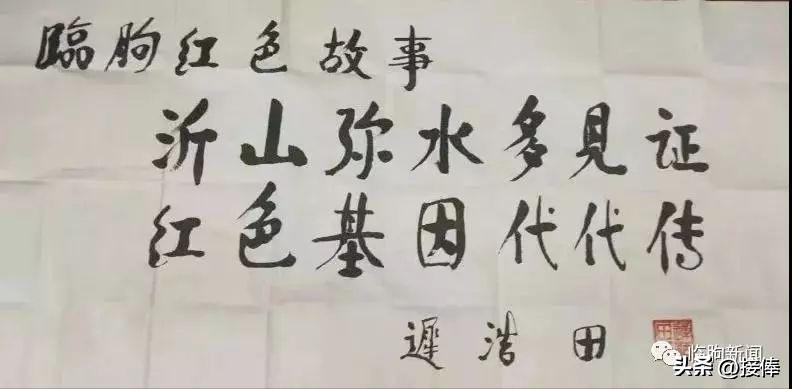 臨朐红色故事
沂山弥水多见证
红色基因代代传
遲浩田
临朐新闻
头条 @接俸